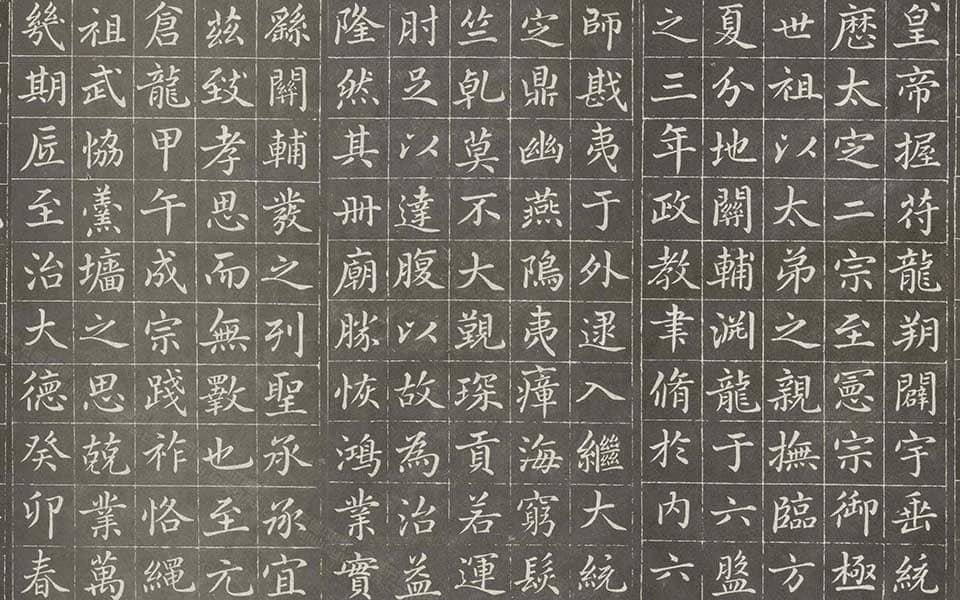 皇帝握符龍朔闢宇垂統
厯太定二宗至憲宗御極
世祖以太弟之親撫臨方
夏分地關輔淵龍于六盤
之三年政教聿脩於内六
師戡夷于外逮入繼大統
定鼎幽燕隝夷瘴海窮髮
竺乹莫不大覲琛貢若運
肘足以達腹以故為治益
隆然其冊廟勝恢鴻業實
繇關輔發之列聖承承宜
茲致孝思而無斁也至元
倉龍甲午成宗踐祚恪繩
祖武恊羹墻之思兢業萬
幾期厎至治大德癸卯春